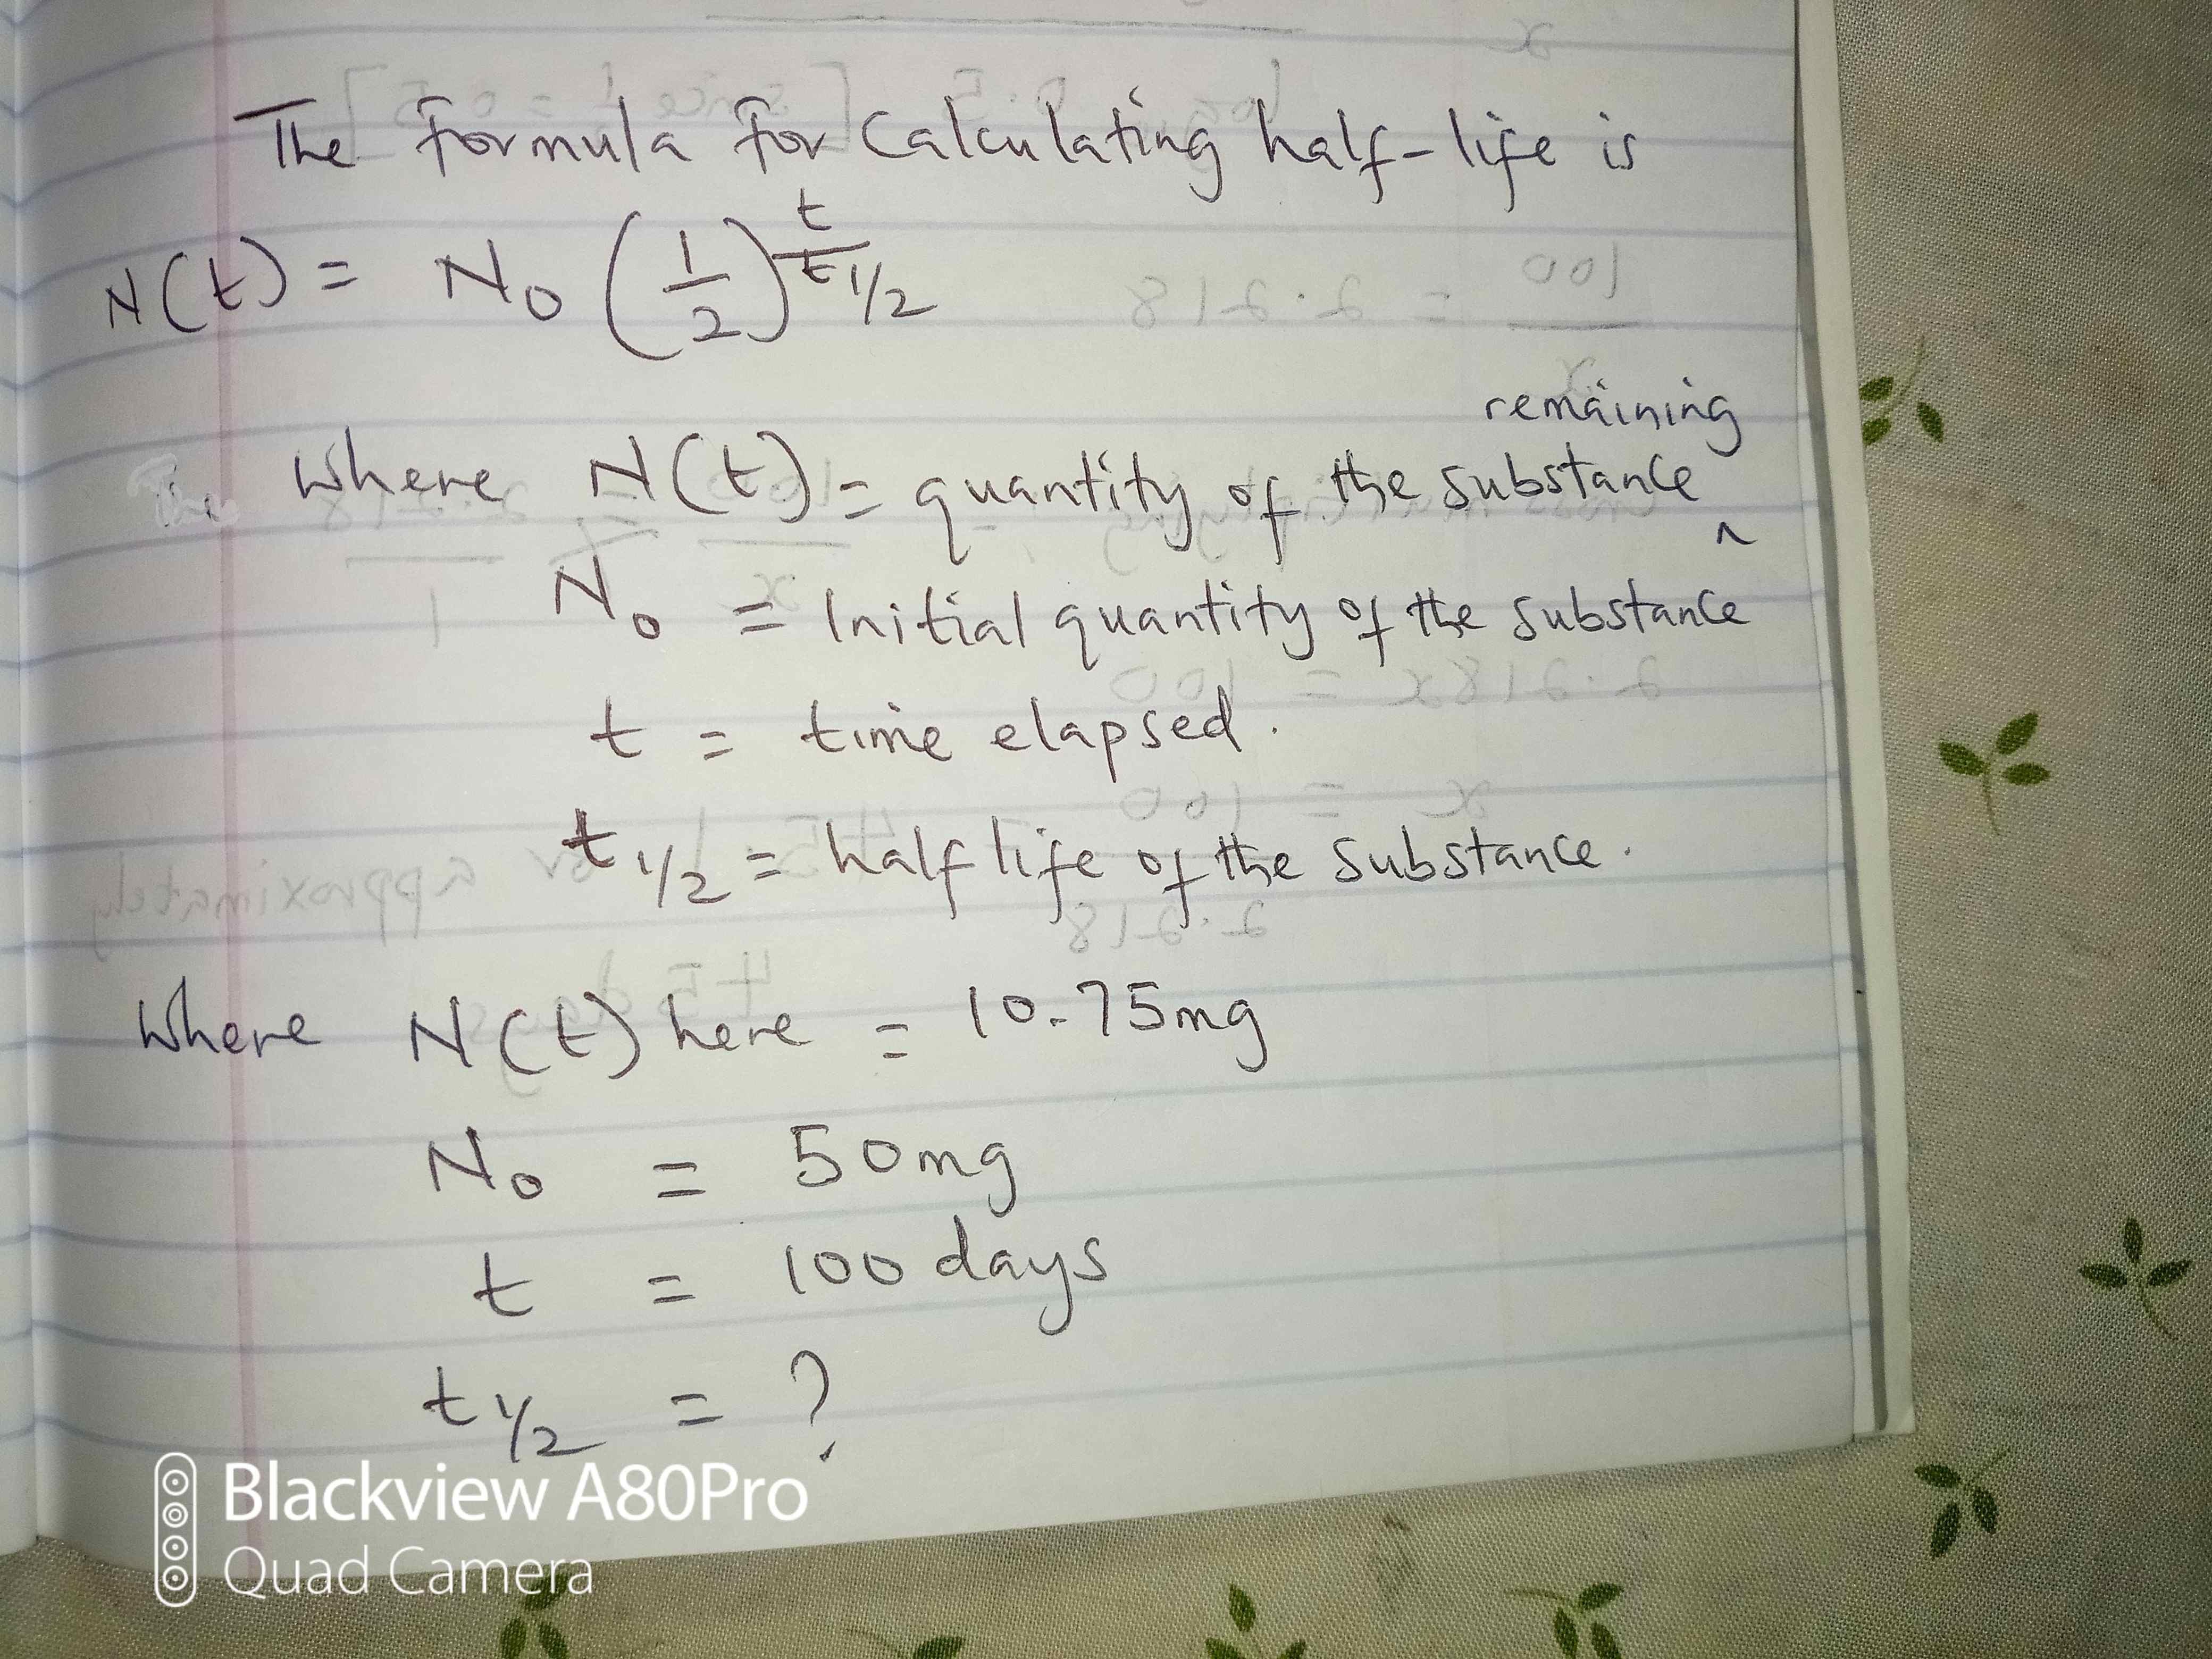 The formula for Calculating half-life is
N(t) = N₀ (1/2)^(t/t1/2)
remaining
where N(t) = quantity of the substance ^
N₀ = Initial quantity of the substance
t = time elapsed.
t1/2 = half life of the substance.
Where N(t) here = 10.75mg
N₀ = 50mg
t = 100 days
t1/2 = ?
Blackview A80Pro
Quad Camera